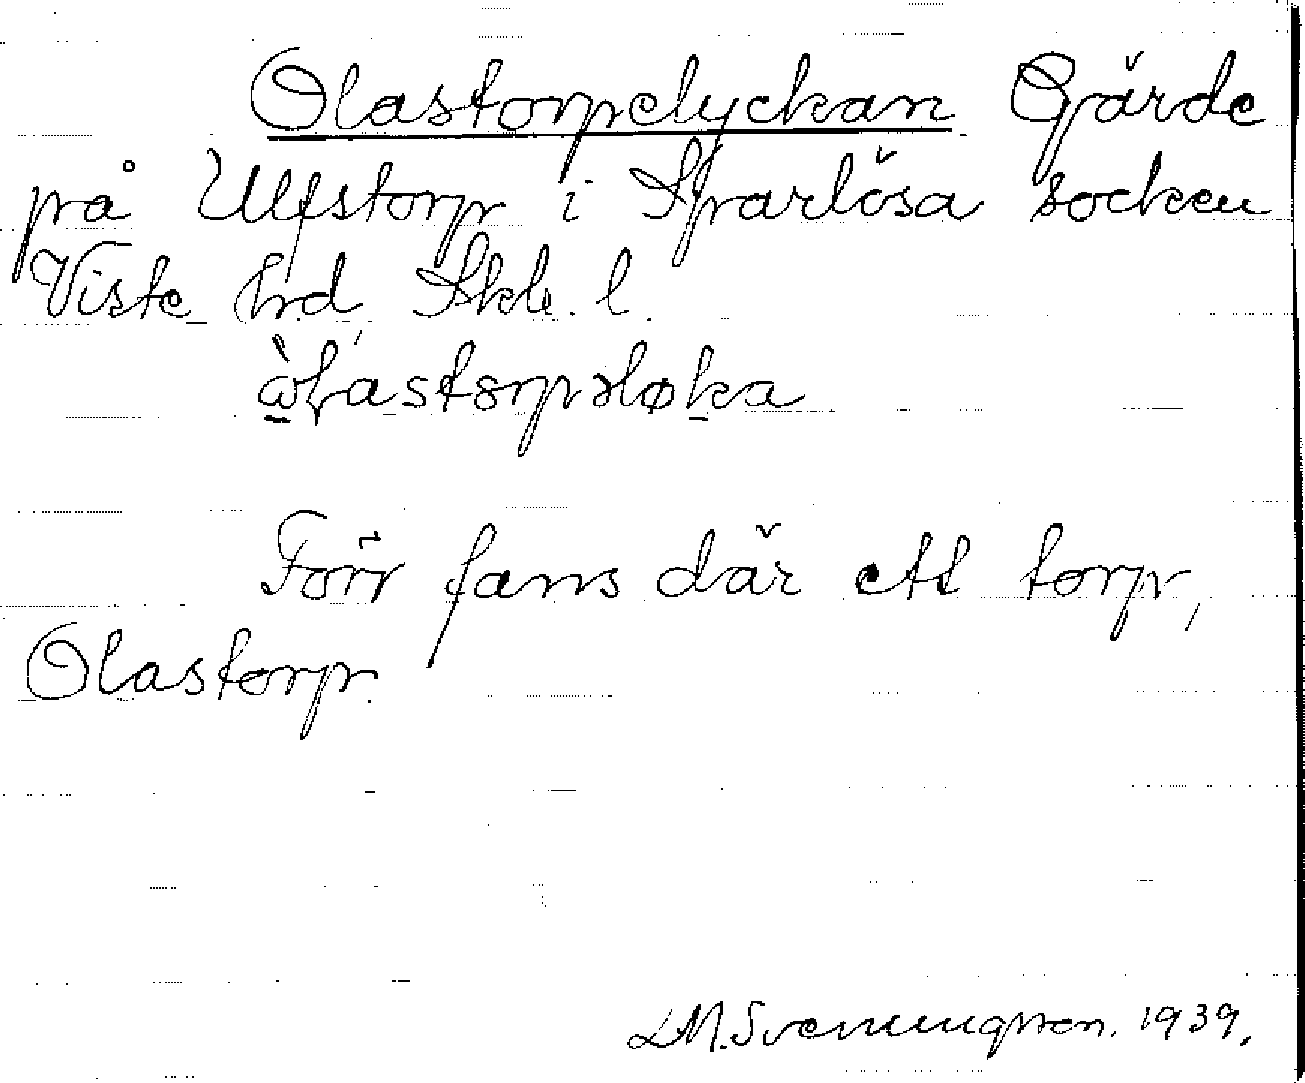 Olastorpelyckan Gärde
på Ulfstorp i Sparlösa socken
Viste hd, Skb. l.
Förr fans där ett torp,
Olastorp.
L M. Svenningsson. 1939.